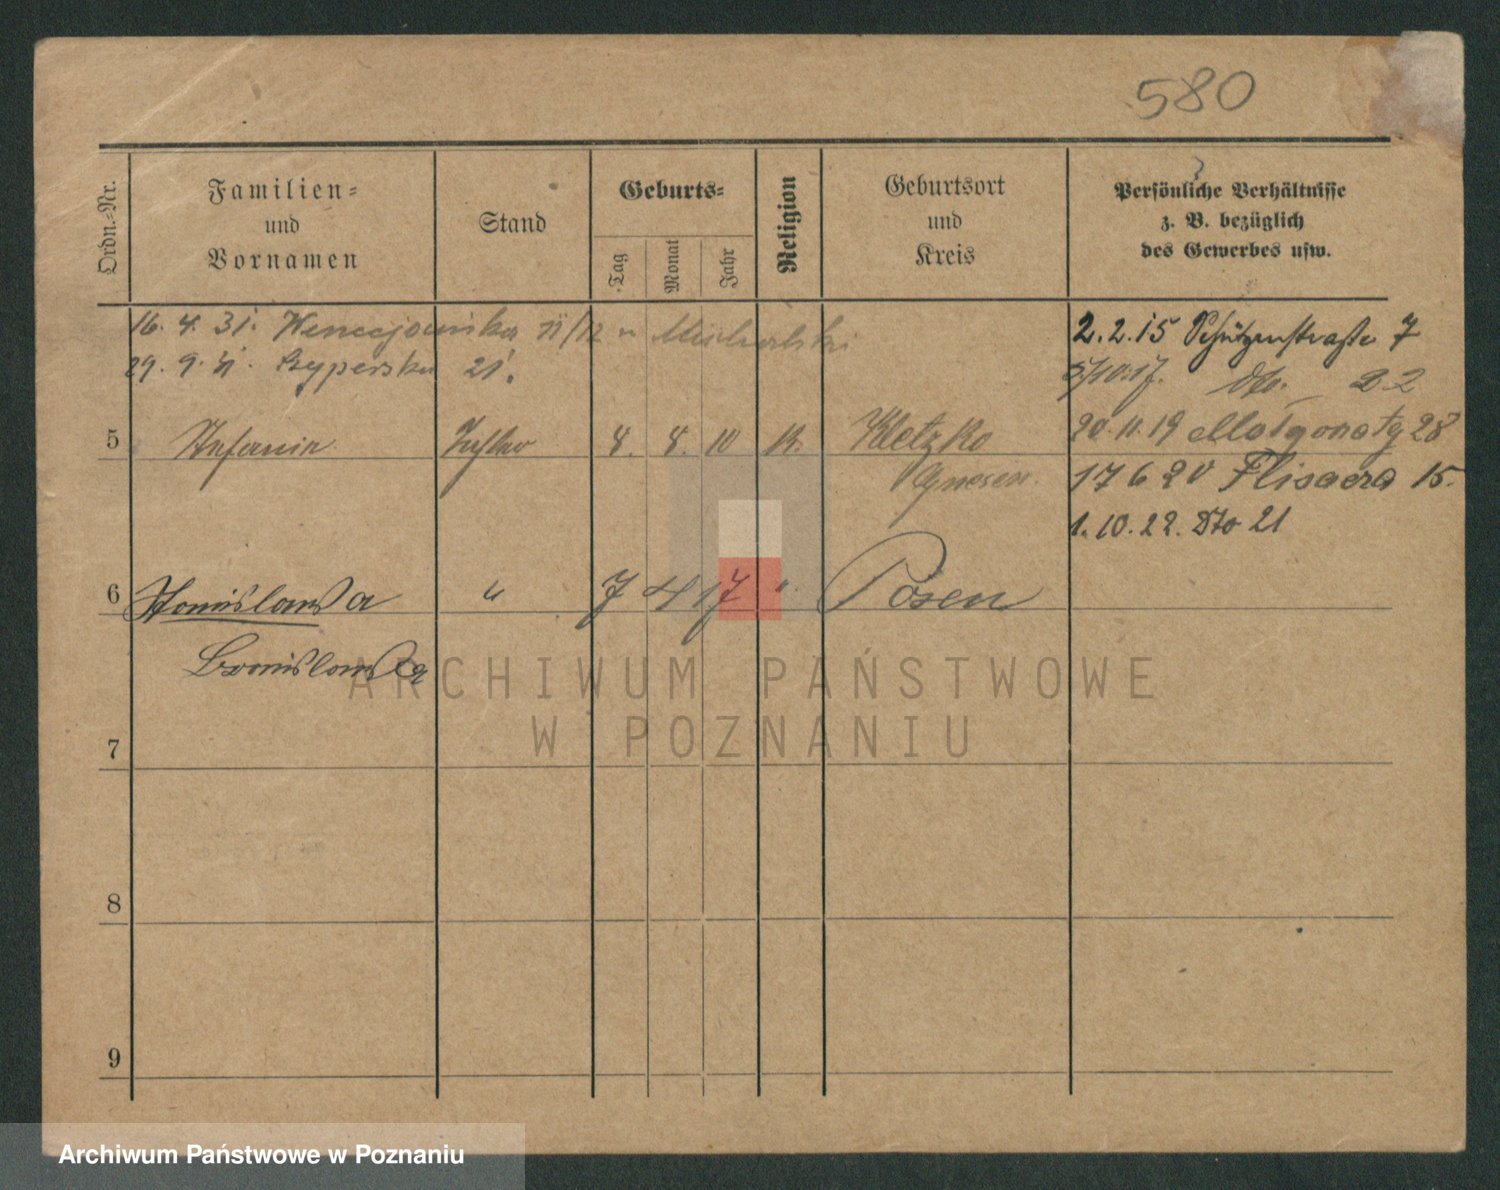 580
Ordn.-Nr.
Familien-
und
Vornamen
Stand
Geburts-
Tag
Monat
Jahr
Religion
Geburtsort
und
Kreis
Persönliche Verhältnisse
z. B. bezüglich
des Gewerbes usw.
16. 4. 31. Wenecjańska 11/12 u Michalski
29. 9. 31. Czyperska 21.
2. 2. 15 Schützenstraße 7
5/10.17. dto. 22
20. 11. 19 Małgonatg 28
17 6 20 Flisacza 15.
1. 10. 22. Dto 21
5 Stefanie Tochter 8. 8. 10 K. Kletzko
Gnesen.
6 Stanislawa " 7 4 17 " Posen
Bronislawa
7
8
9
ARCHIWUM PAŃSTWOWE
W POZNANIU
Archiwum Państwowe w Poznaniu